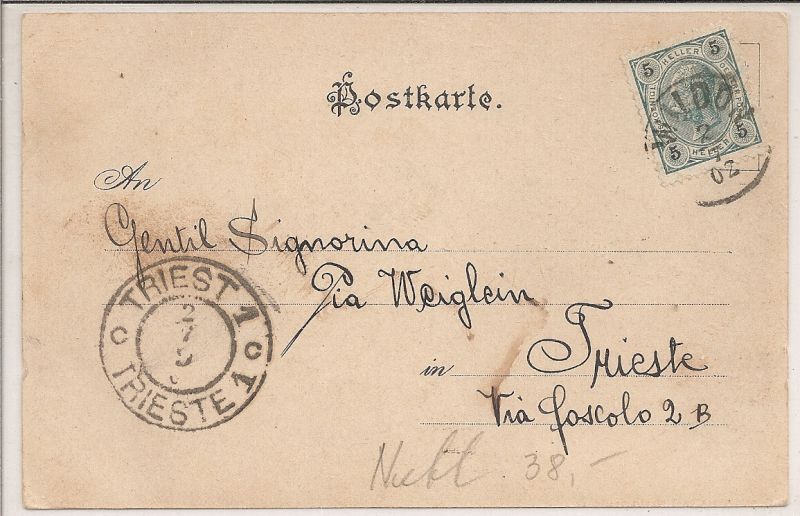 Postkarte.
5 HELLER 5
5 HELLER 5
2
7
02
An
Gentil Signorina
Pia Weiglein
in Trieste
Via Foscolo 2 B
TRIEST 1
2
7
TRIESTE 1
38,-